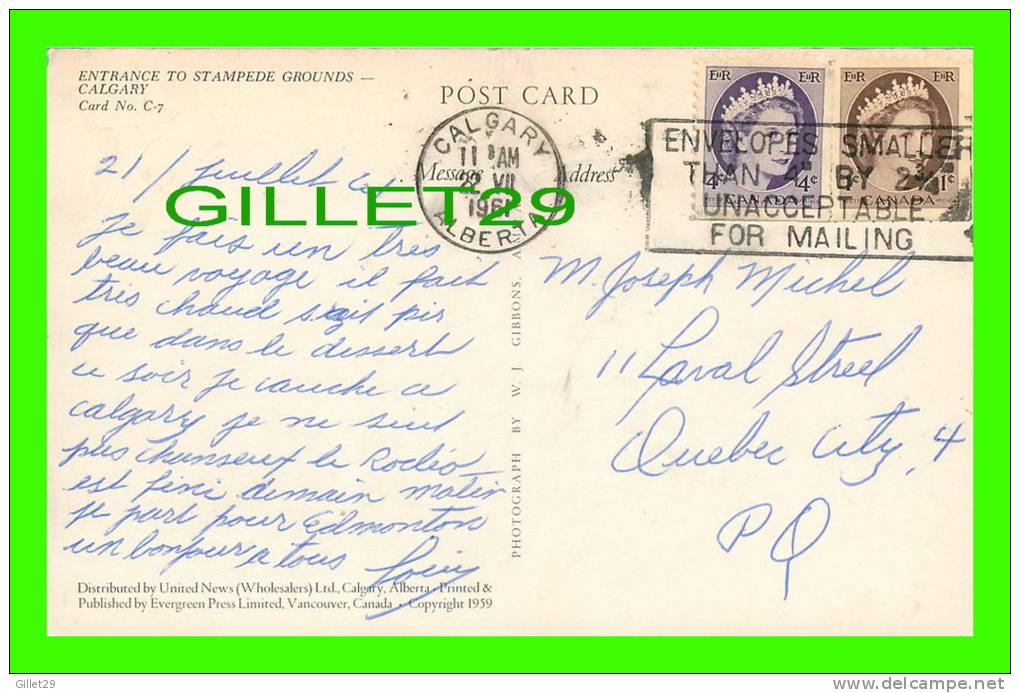 ENTRANCE TO STAMPEDE GROUNDS —
CALGARY
Card No. C-7
POST CARD
Message
Address
CALGARY
11 AM
VII
1961
ALBERTA
EIIR EIIR
4c 4c
CANADA
EIIR EIIR
1c 1c
CANADA
ENVELOPES SMALLER
THAN 4" BY 2¾"
UNACCEPTABLE
FOR MAILING
GILLET29
21 / Juillet
Je fais un tres
beau voyage il fait
tres chaud s'ait pir
que dans le dessert
ce soir je couche a
Calgary je ne suit
pas chanseux le Rodéo
est fini demain matin
je part pour Edmonton
un bonjour a tous
M. Joseph Michel
11 Laval Street
Quebec City, 4
P Q
PHOTOGRAPH BY W. J. GIBBONS.
Distributed by United News (Wholesalers) Ltd., Calgary, Alberta · Printed &
Published by Evergreen Press Limited, Vancouver, Canada · Copyright 1959
Gillet29
www.delcampe.net